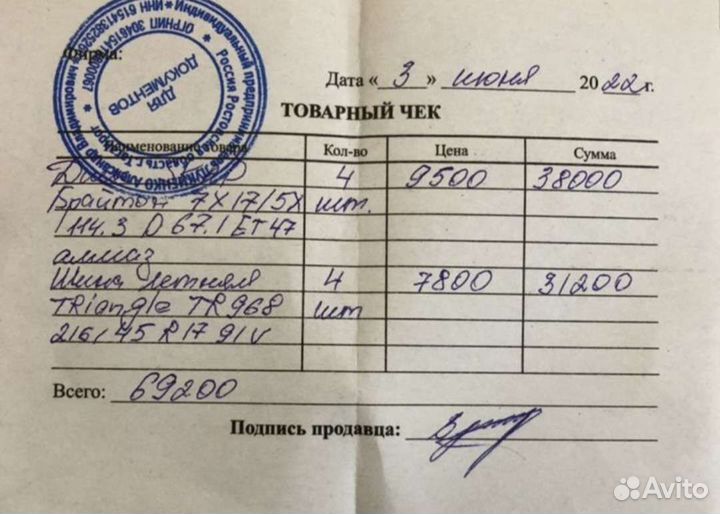 Фирма:
Индивидуальный предприниматель
ИНН 6154138252
ОГРНИП
Россия Ростовская область г. Таганрог
ДЛЯ ДОКУМЕНТОВ
Дата « 3 » июня 2022г.
ТОВАРНЫЙ ЧЕК
Наименование товара Кол-во Цена Сумма
4 9500 38000
Брайтон 7X17/5X шт.
114.3 D 67.1 ET47
алмаз
Шина летняя 4 7800 31200
TRiangle TR968 шт
216/45 R17 91V
Всего: 69200
Подпись продавца:
Avito